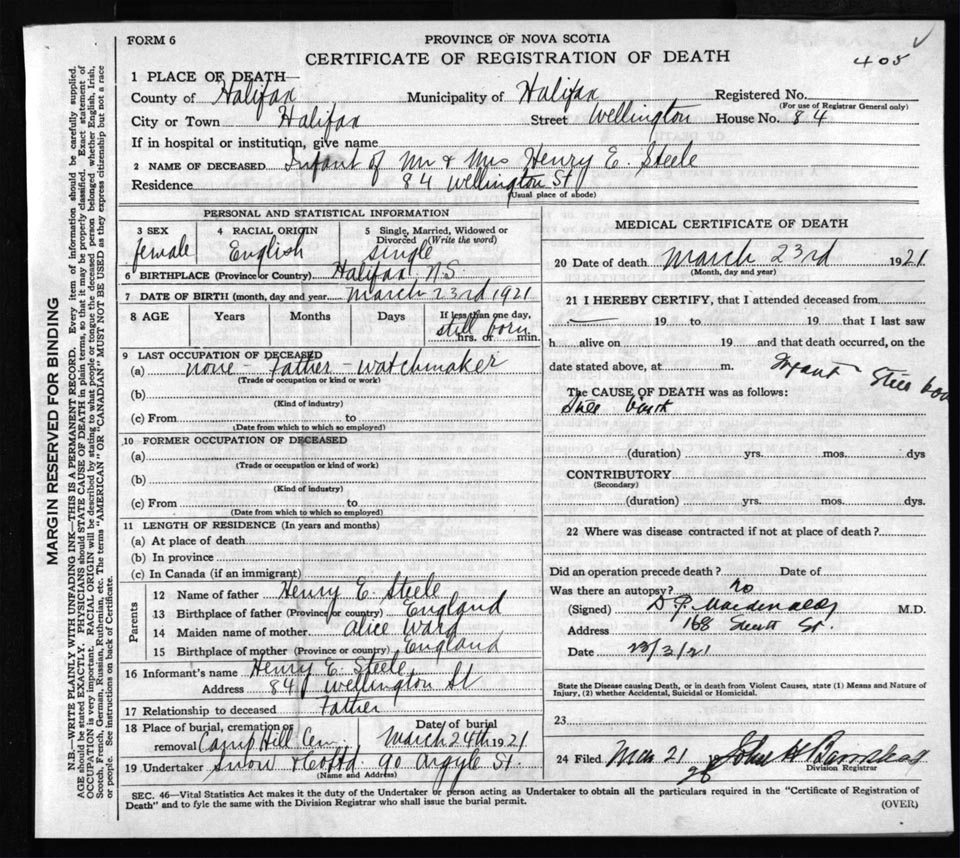 FORM 6
PROVINCE OF NOVA SCOTIA
CERTIFICATE OF REGISTRATION OF DEATH
405
1 PLACE OF DEATH—
County of Halifax Municipality of Halifax Registered No.
(For use of Registrar General only)
City or Town Halifax Street Wellington House No. 84
If in hospital or institution, give name
2 NAME OF DECEASED Infant of Mr & Mrs Henry E. Steele
Residence 84 Wellington St
(Usual place of abode)
PERSONAL AND STATISTICAL INFORMATION
3 SEX 4 RACIAL ORIGIN 5 Single, Married, Widowed or Divorced (Write the word)
female English single
6 BIRTHPLACE (Province or Country) Halifax N.S.
7 DATE OF BIRTH (month, day and year March 23rd 1921
8 AGE Years Months Days If less than one day,
still born
hrs. or min.
9 LAST OCCUPATION OF DECEASED
(a) none - father - watchmaker
(Trade or occupation or kind or work)
(b)
(Kind of industry)
(c) From to
(Date from which to which so employed)
10 FORMER OCCUPATION OF DECEASED
(a)
(Trade or occupation or kind of work)
(b)
(Kind of industry)
(c) From to
(Date from which to which so employed)
11 LENGTH OF RESIDENCE (In years and months)
(a) At place of death
(b) In province
(c) In Canada (if an immigrant)
Parents
12 Name of father Henry E. Steele
13 Birthplace of father (Province or country) England
14 Maiden name of mother Alice Ward
15 Birthplace of mother (Province or country) England
16 Informant's name Henry E. Steele
Address 84 Wellington St
17 Relationship to deceased father
18 Place of burial, cremation or removal Camp Hill Cem. Date of burial March 24th 1921
19 Undertaker Snow & Co Ltd 90 Argyle St.
(Name and Address)
MEDICAL CERTIFICATE OF DEATH
20 Date of death March 23rd 1921
(Month, day and year)
21 I HEREBY CERTIFY, that I attended deceased from
19 to 19 that I last saw
h alive on 19 and that death occurred, on the
date stated above, at m. Infant Still born
The CAUSE OF DEATH was as follows:
Still birth
(duration) yrs. mos. dys
CONTRIBUTORY
(Secondary)
(duration) yrs. mos. dys.
22 Where was disease contracted if not at place of death?
Did an operation precede death? Date of
Was there an autopsy? no
(Signed) M.D.
Address 168 St.
Date 23/3/21
State the Disease causing Death, or in death from Violent Causes, state (1) Means and Nature of
Injury, (2) whether Accidental, Suicidal or Homicidal.
23
24 Filed 21 John H
Division Registrar
SEC. 46—Vital Statistics Act makes it duty of the Undertaker or person acting as Undertaker to obtain all the particulars required in the "Certificate of Registration of
Death" and to fyle the same with the Division Registrar who shall issue the burial permit.
(OVER)
MARGIN RESERVED FOR BINDING
N.B.—WRITE PLAINLY WITH UNFADING INK—THIS IS A PERMANENT RECORD. Every item of information should be carefully supplied.
AGE should be stated EXACTLY. PHYSICIANS should STATE CAUSE OF DEATH in plain terms, so that it may be properly classified. Exact statement of
OCCUPATION is very important. RACIAL ORIGIN will be described by stating to what people or tongue the deceased person belonged whether English, Irish,
Scotch, French, German, Russian, Ruthenian, etc. The terms "AMERICAN" OR "CANADIAN" MUST NOT BE USED as they express citizenship but not a race
or people. See instructions on back of Certificate.